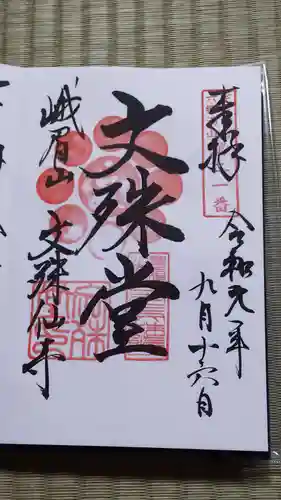 奉拝
一番
令和元年
九月十六日
文殊堂
峨眉山
文殊仙寺